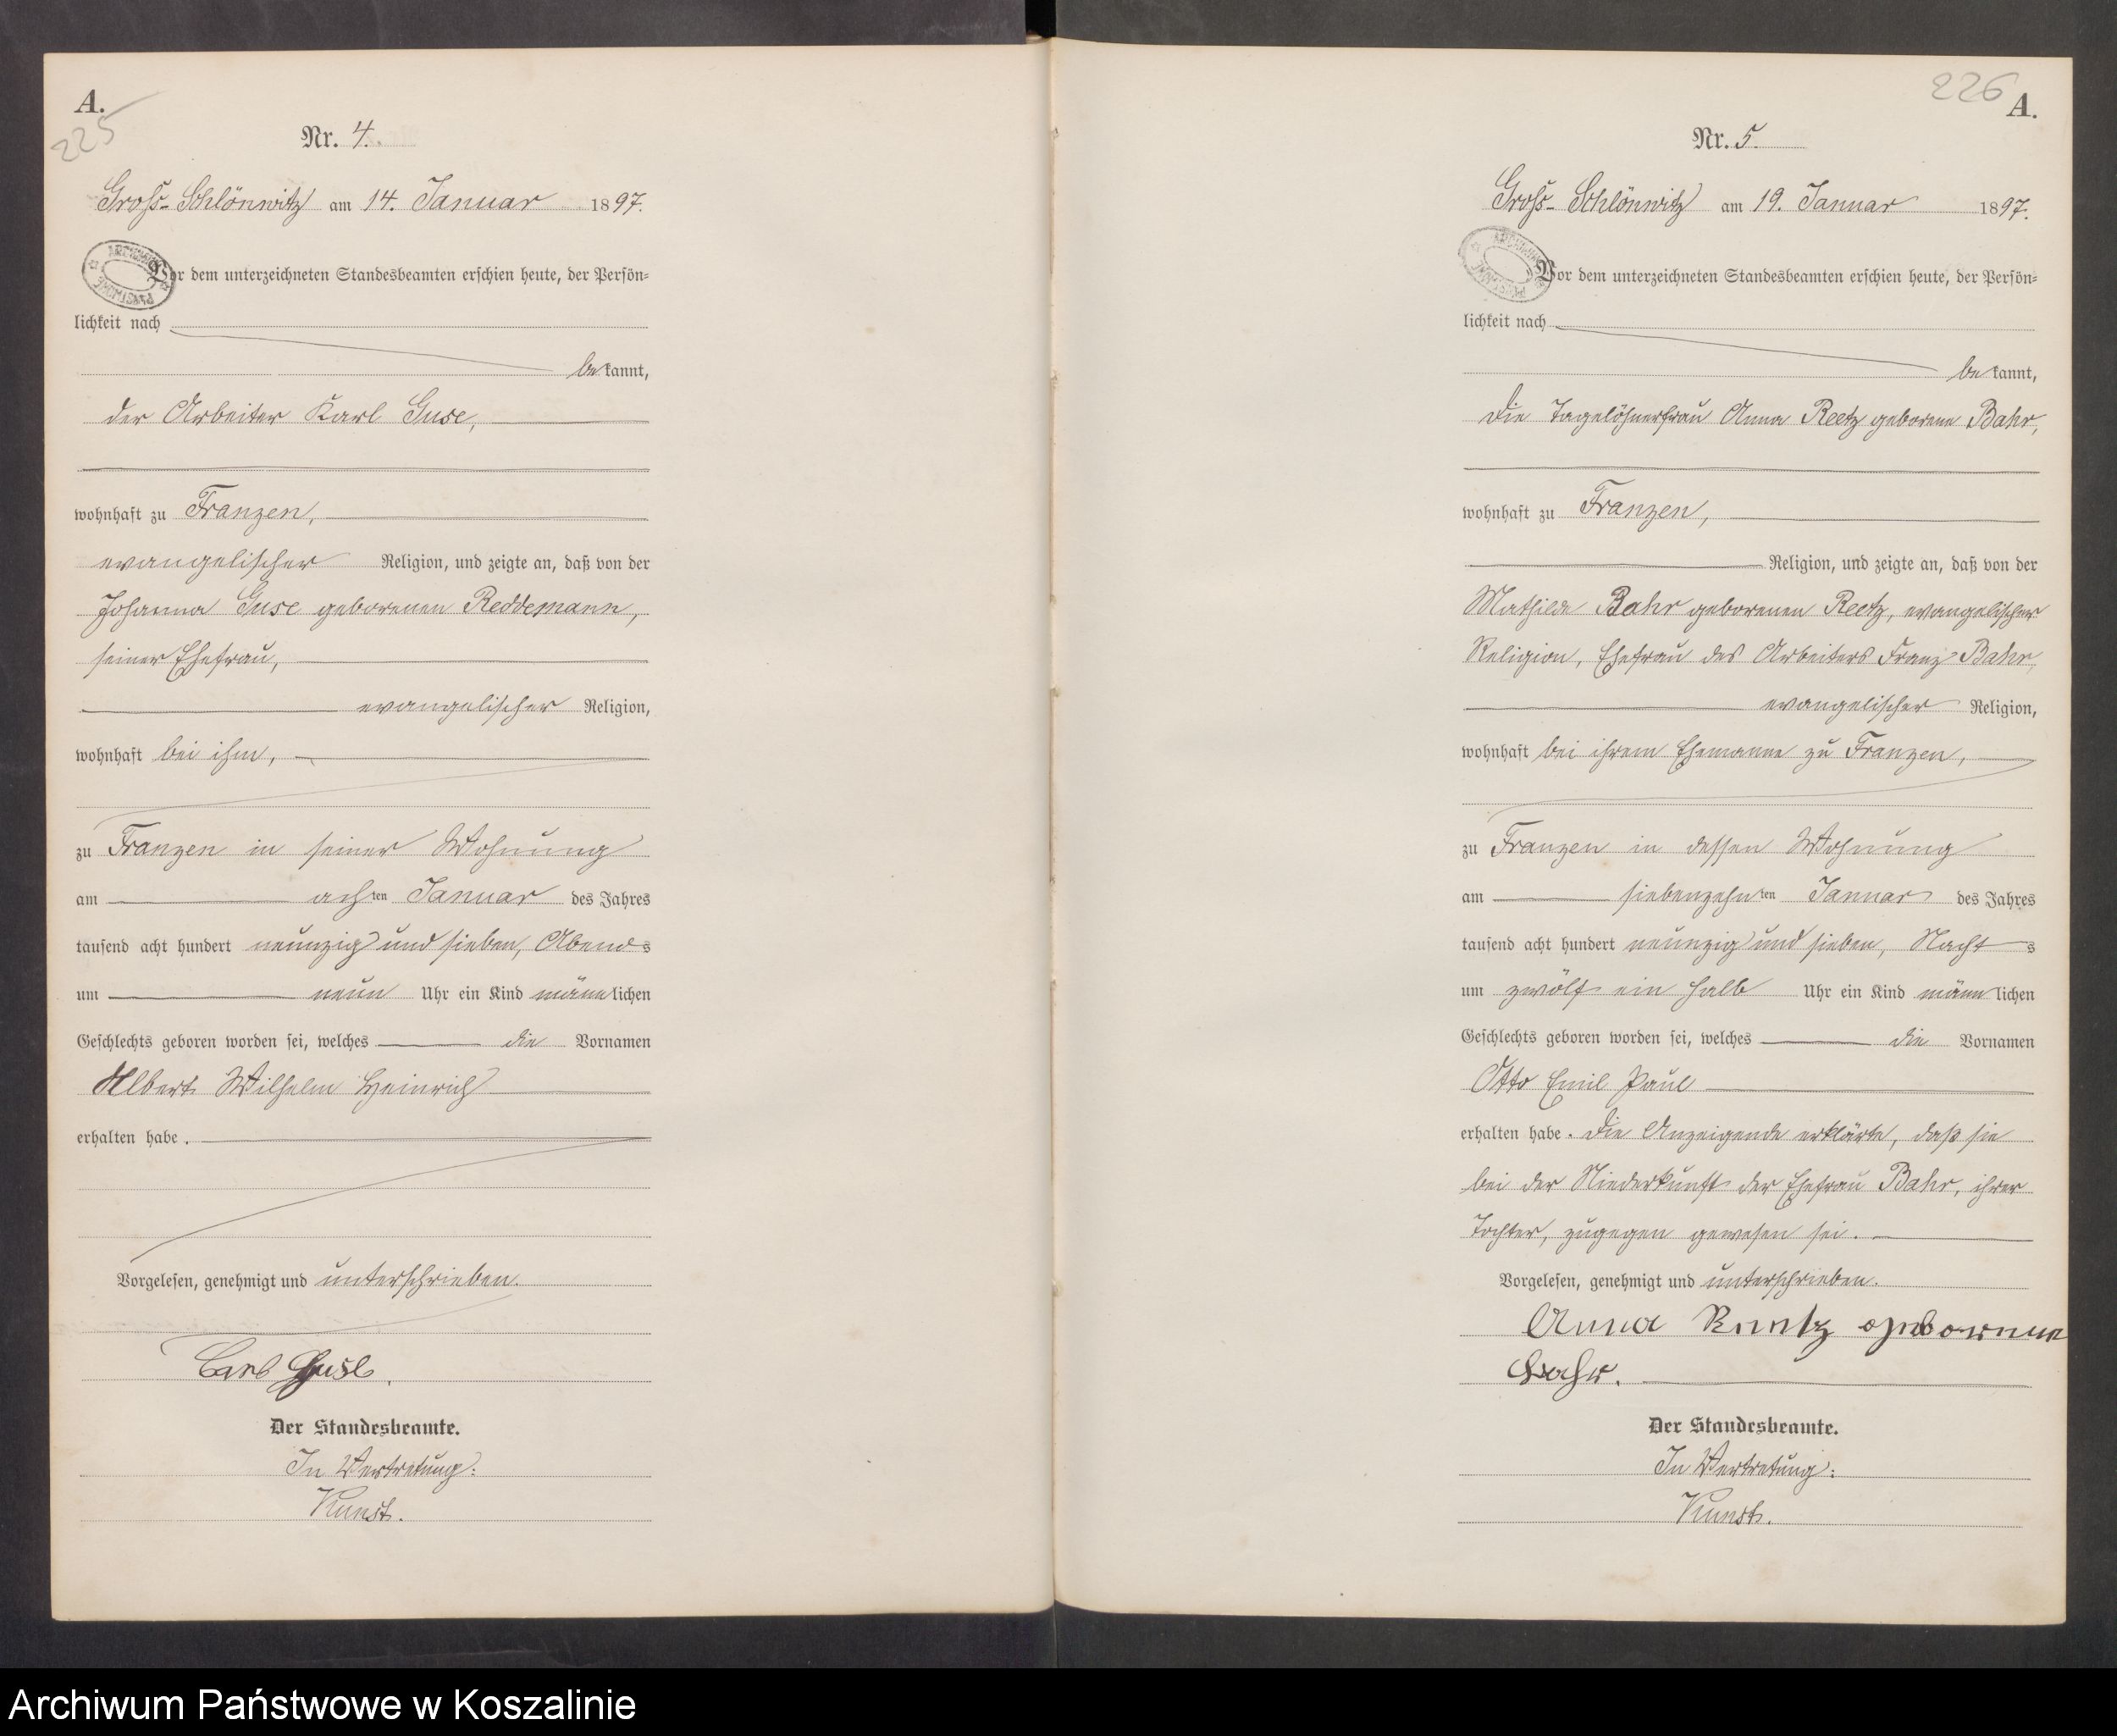 A.
225
Nr. 4.
Groß-Schlönwitz am 14. Januar 1897.
Vor dem unterzeichneten Standesbeamten erschien heute, der Persön-
lichkeit nach
bekannt,
der Arbeiter Karl Guse,
wohnhaft zu Franzen,
evangelischer Religion, und zeigte an, daß von der
Johanna Guse geborenen Reddemann,
seiner Ehefrau,
evangelischer Religion,
wohnhaft bei ihm,
zu Franzen in seiner Wohnung
am achten Januar des Jahres
tausend acht hundert neunzig und sieben, Abends
um neun Uhr ein Kind männlichen
Geschlechts geboren worden sei, welches die Vornamen
Albert Wilhelm Heinrich
erhalten habe.
Vorgelesen, genehmigt und unterschrieben.
Carl Guse.
Der Standesbeamte.
In Vertretung:
Kunst.
226
A.
Nr. 5.
Groß-Schlönwitz am 19. Januar 1897.
Vor dem unterzeichneten Standesbeamten erschien heute, der Persön-
lichkeit nach
bekannt,
die Tagelöhnerfrau Anna Reetz geborene Bahr,
wohnhaft zu Franzen,
Religion, und zeigte an, daß von der
Mathilde Bahr geborenen Reetz, evangelischer
Religion, Ehefrau des Arbeiters Franz Bahr,
evangelischer Religion,
wohnhaft bei ihrem Ehemanne zu Franzen,
zu Franzen in dessen Wohnung
am siebenzehnten Januar des Jahres
tausend acht hundert neunzig und sieben, Nachts
um zwölf ein halb Uhr ein Kind männlichen
Geschlechts geboren worden sei, welches die Vornamen
Otto Emil Paul
erhalten habe. Die Anzeigende erklärte, daß sie
bei der Niederkunft der Ehefrau Bahr, ihrer
Tochter, zugegen gewesen sei.
Vorgelesen, genehmigt und unterschrieben.
Anna Reetz geborene
Bahr.
Der Standesbeamte.
In Vertretung:
Kunst.
Archiwum Państwowe w Koszalinie